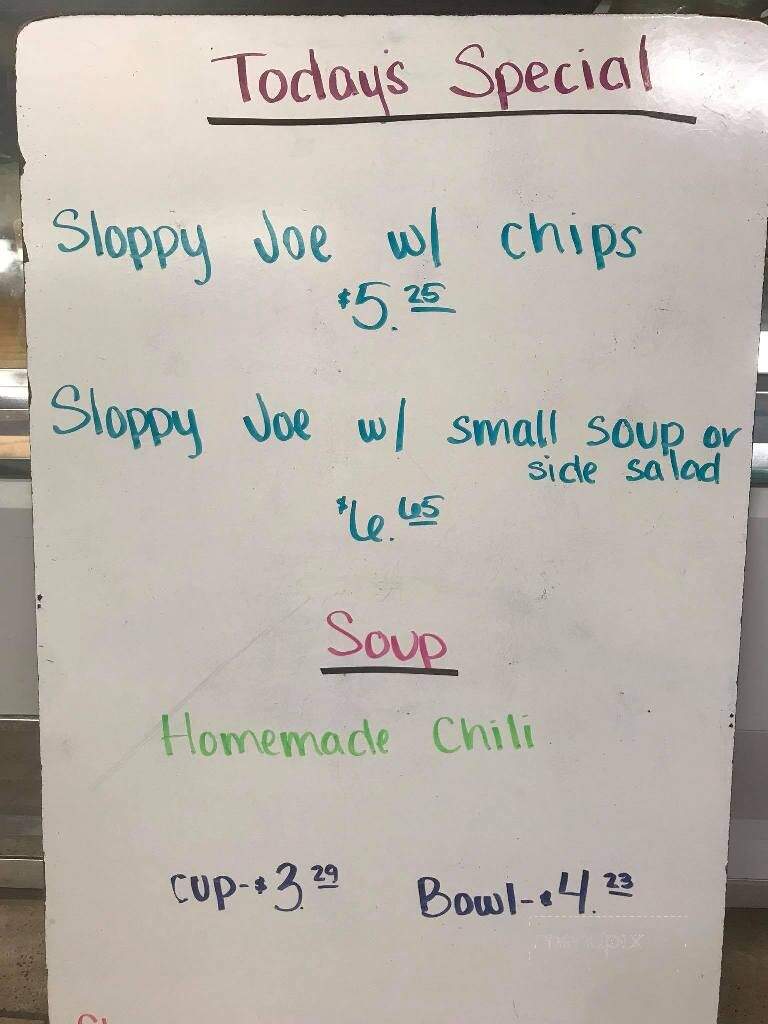 Today's Special
Sloppy Joe w/ chips
$5.25
Sloppy Joe w/ small soup or
side salad
$6.65
Soup
Homemade Chili
cup-$3.29 Bowl-$4.23